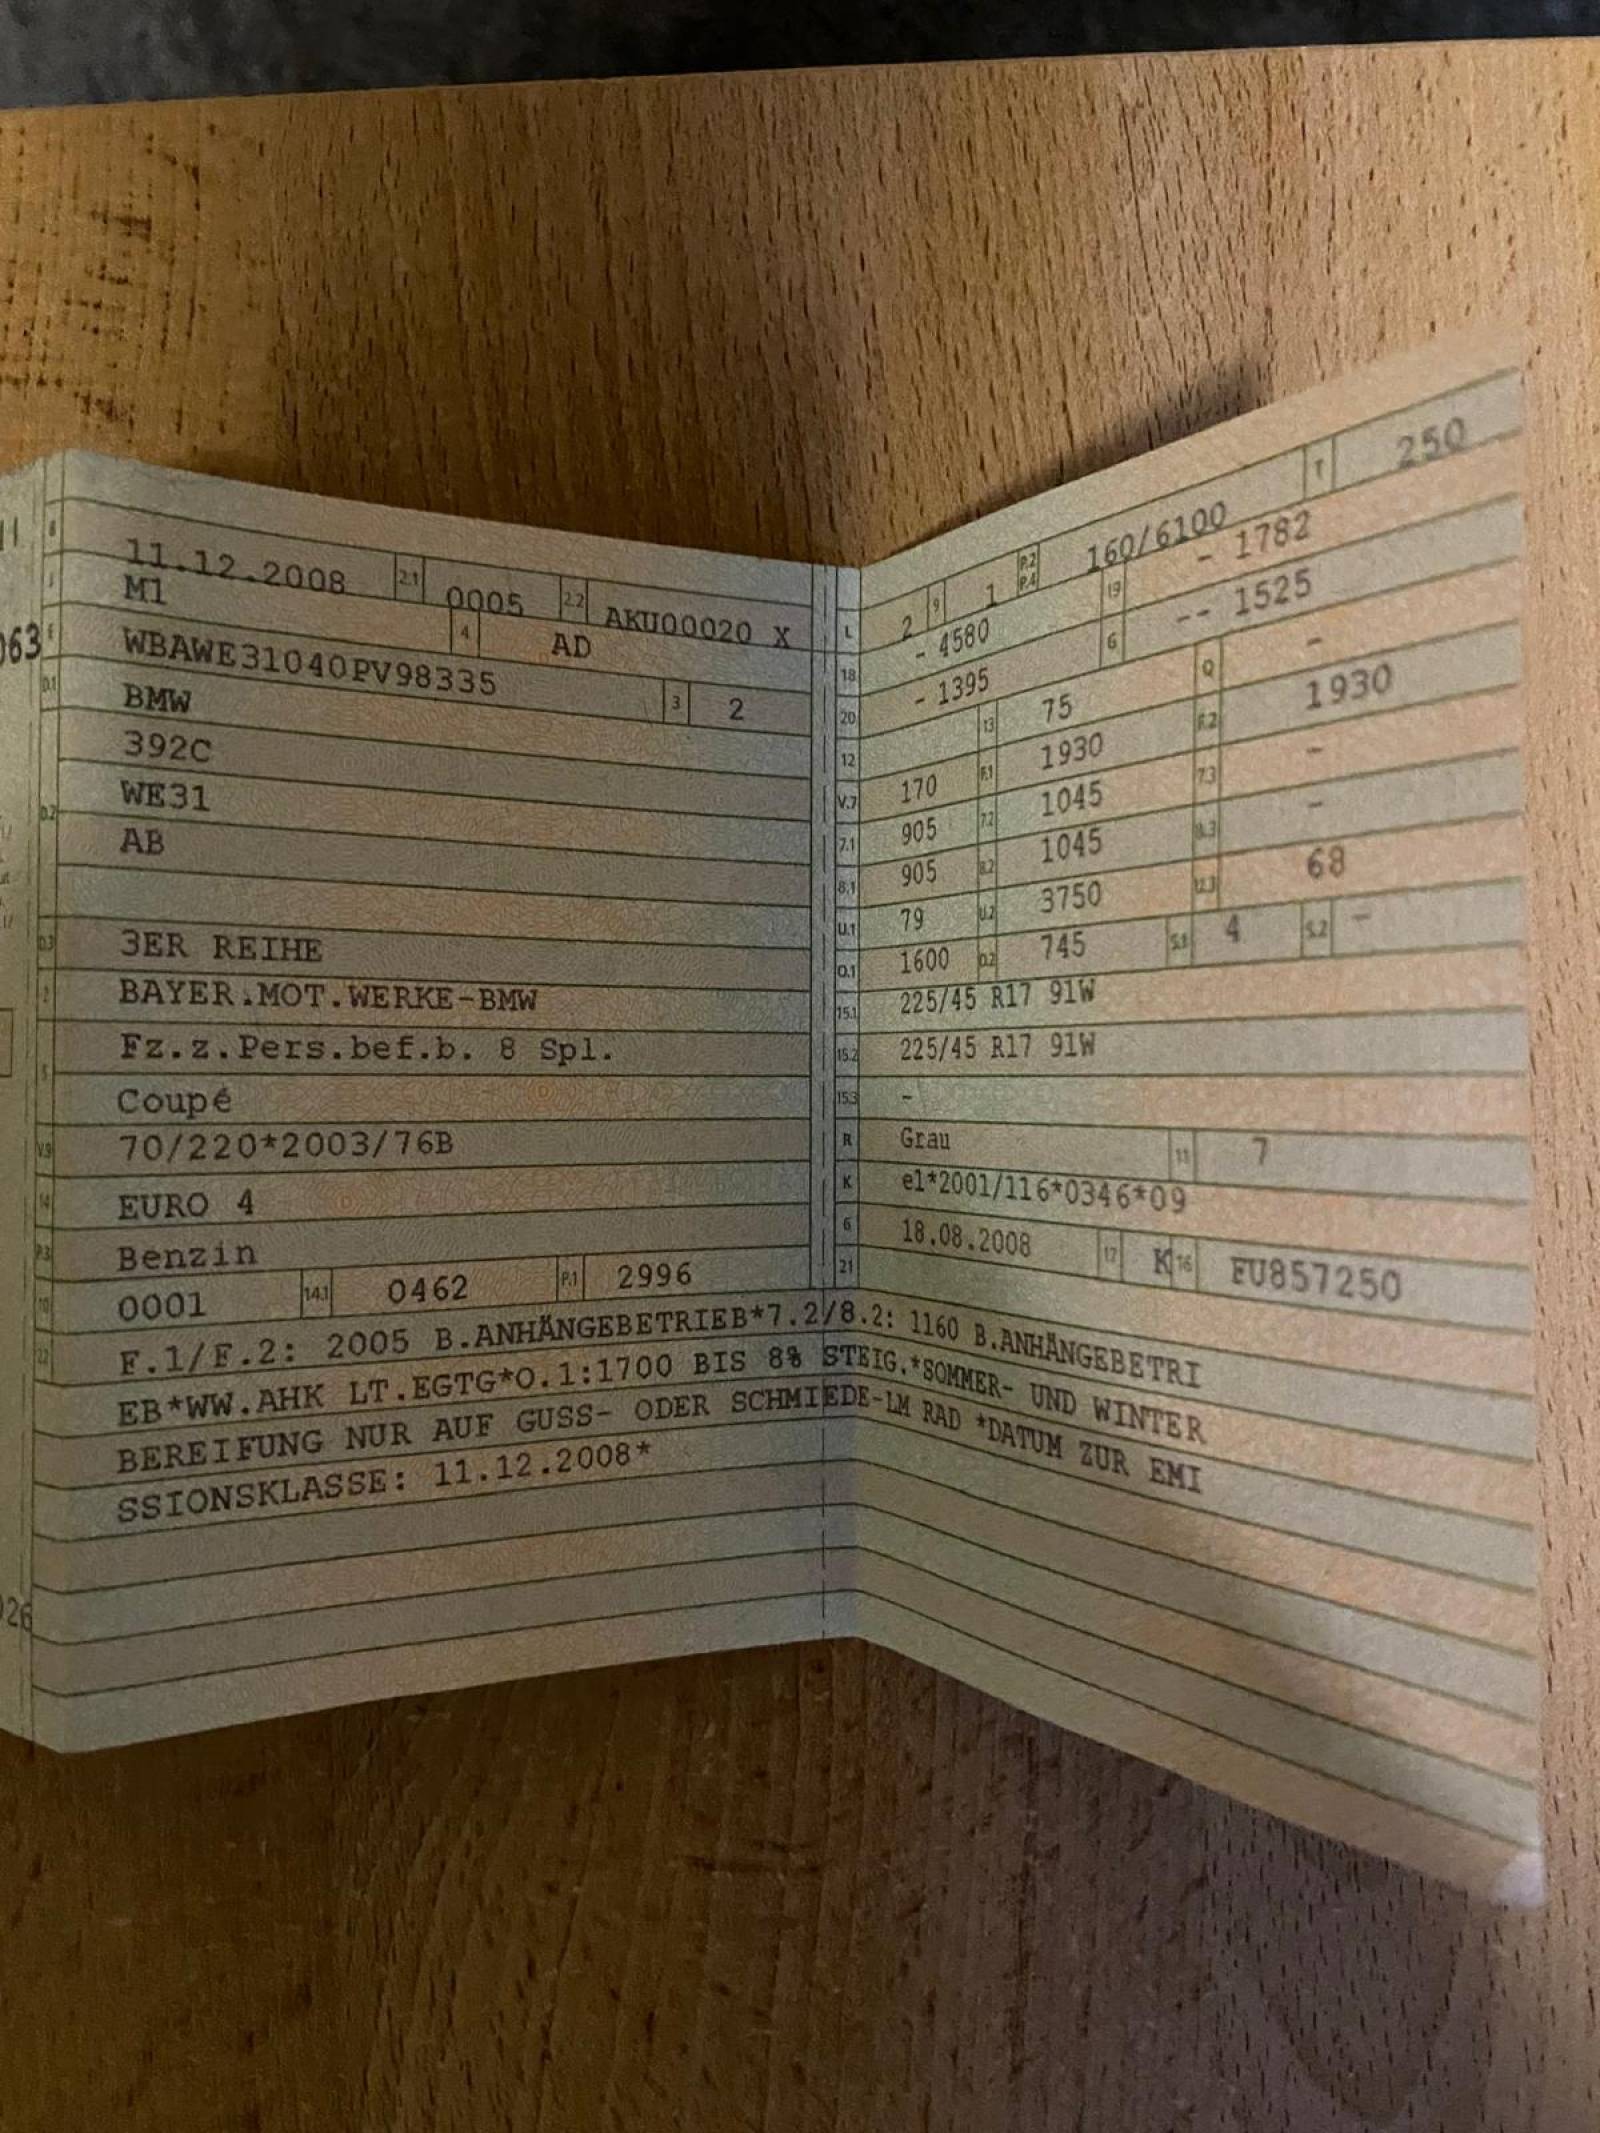 B 11.12.2008 2.1 0005 2.2 AKU00020 X
J M1 4 AD
E WBAWE31040PV98335 3 2
D.1 BMW
392C
D.2 WE31
AB
D.3 3ER REIHE
2 BAYER.MOT.WERKE-BMW
5 Fz.z.Pers.bef.b. 8 Spl.
Coupé
V.9 70/220*2003/76B
14 EURO 4
P.3 Benzin
10 0001 14.1 0462 P.1 2996
L 2 9 1 P.2 P.4 160/6100 T 250
18 - 4580 19 - 1782
20 - 1395 G -- 1525
12 13 75 Q -
V.7 170 F.1 1930 F.2 1930
7.1 905 7.2 1045 7.3 -
8.1 905 8.2 1045 8.3 -
U.1 79 U.2 3750 U.3 68
O.1 1600 O.2 745 S.1 4 S.2 -
15.1 225/45 R17 91W
15.2 225/45 R17 91W
15.3 -
R Grau 11 7
K e1*2001/116*0346*09
6 18.08.2008 17 K 16 FU857250
21
22 F.1/F.2: 2005 B.ANHÄNGEBETRIEB*7.2/8.2: 1160 B.ANHÄNGEBETRI
EB*WW.AHK LT.EGTG*O.1:1700 BIS 8% STEIG.*SOMMER- UND WINTER
BEREIFUNG NUR AUF GUSS- ODER SCHMIEDE-LM RAD *DATUM ZUR EMI
SSIONSKLASSE: 11.12.2008*